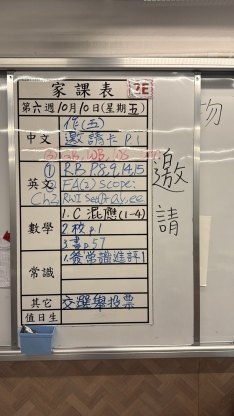 家課表 2E
第六週 10月10日(星期五)
作(五)
中文 邀請卡 P.1
① RB P.8,9,14,15
英文 ② FA(2) Scope:
Ch2,
數學 1. C 混應(1-4)
2 校 p.1
3 書 p.57
常識 1. 餐常識進評1
其它 交選舉投票
值日生
物
邀
請